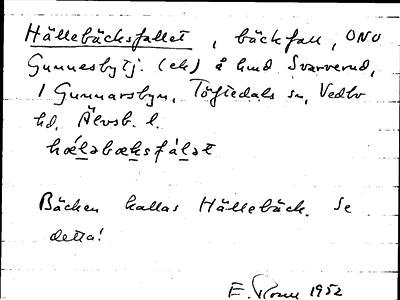 Hällebäcksfallet, bäckfall, ONO
Gunnesbytj. (ek) å hmd Svarverud,
1 Gunnarsbyn, Töftedals sn, Vedbo
hd, Älvsb. l.
hǽləbæksfálət
Bäcken kallas Hällebäck. Se
detta!
E. 1952